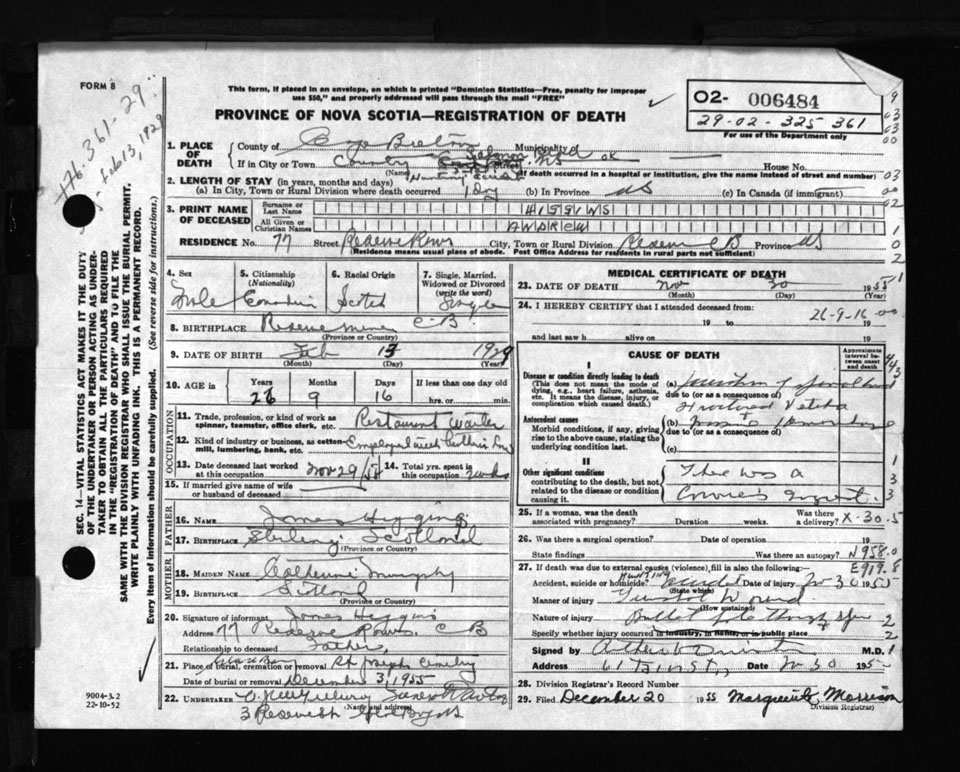 FORM 8
#76-361-29
Feb 13, 1929
This form, if placed in an envelope, on which is printed "Dominion Statistics—Free, penalty for improper
use $50," and properly addressed will pass through the mail "FREE"
PROVINCE OF NOVA SCOTIA—REGISTRATION OF DEATH
02- 006484
29-02-325 361
For use of the Department only
1. PLACE OF DEATH
County of Cape Breton Municipality
If in City or Town County NS or House No.
(Name)
(If death occurred in a hospital or institution, give the name instead of street and number)
2. LENGTH OF STAY (in years, months and days)
(a) In City, Town or Rural Division where death occurred 1 Day (b) In Province NS (c) In Canada (if immigrant)
3. PRINT NAME OF DECEASED
Surname or Last Name HIGGINS
All Given or Christian Names ANDREW
RESIDENCE No. 77 Street Reserve Rows City, Town or Rural Division Reserve CB Province NS
(Residence means usual place of abode. Post Office Address for residents in rural parts not sufficient)
4. Sex Male
5. Citizenship (Nationality) Canadian
6. Racial Origin Scotch
7. Single, Married, Widowed or Divorced (write the word) Single
8. BIRTHPLACE Reserve Mines C-B.
(Province or Country)
9. DATE OF BIRTH Feb 13 1929
(Month) (Day) (Year)
10. AGE in Years Months Days If less than one day old
26 9 16 hrs. or min.
OCCUPATION
11. Trade, profession, or kind of work as spinner, teamster, office clerk, etc. Restaurant waiter
12. Kind of industry or business, as cotton mill, lumbering, bank, etc. Employed with
13. Date deceased last worked at this occupation Nov 29/55 14. Total yrs. spent in this occupation
15. If married give name of wife or husband of deceased
FATHER
16. NAME James Higgins
17. BIRTHPLACE Stirling Scotland
(Province or Country)
MOTHER
18. MAIDEN NAME Catherine Murphy
19. BIRTHPLACE Scotland
(Province or Country)
20. Signature of informant James Higgins
Address 77 Reserve Rows. C B
Relationship to deceased Father
21. Place of burial, cremation or removal St Joseph Cemetery
Date of burial or removal December 3, 1955
22. UNDERTAKER
(Name and address)
3 Reserve St Glace Bay NS
MEDICAL CERTIFICATE OF DEATH
23. DATE OF DEATH Nov 30 1955
(Month) (Day) (Year)
24. I HEREBY CERTIFY that I attended deceased from
26-9-16-00
19 to 19
and last saw h alive on 19
CAUSE OF DEATH
Approximate interval between onset and death
I
Disease or condition directly leading to death
(This does not mean the mode of dying, e.g., heart failure, asthenia, etc. It means the disease, injury, or complication which caused death.)
(a)
due to (or as a consequence of)
Fractured
Antecedent causes
Morbid conditions, if any, giving rise to the above cause, stating the underlying condition last.
(b) Massive Hemorrhage
due to (or as a consequence of)
(c)
II
Other significant conditions contributing to the death, but not related to the disease or condition causing it.
There was a
Coroner's Inquest.
25. If a woman, was the death associated with pregnancy? Duration weeks. Was there a delivery? X-30-5
26. Was there a surgical operation? Date of operation
State findings Was there an autopsy? N958.0
27. If death was due to external causes (violence), fill in also the following:— E919.8
Accident, suicide or homicide? Hunting Accident Date of injury N 30 1955
(State which)
Manner of injury Gunshot Wound
(How sustained)
Nature of injury Bullet
Specify whether injury occurred in industry, in home, or in public place
Signed by M.D.
Address Date N 30 195
28. Division Registrar's Record Number
29. Filed December 20 1955 Marguerite Morrison
Division Registrar
SEC. 14—VITAL STATISTICS ACT MAKES IT THE DUTY
OF THE UNDERTAKER OR PERSON ACTING AS UNDER-
TAKER TO OBTAIN ALL THE PARTICULARS REQUIRED
IN THE "REGISTRATION OF DEATH" AND TO FILE THE
SAME WITH THE DIVISION REGISTRAR WHO SHALL ISSUE THE BURIAL PERMIT.
WRITE PLAINLY WITH UNFADING INK. THIS IS A PERMANENT RECORD.
Every item of information should be carefully supplied. (See reverse side for instructions.)
9004-3.2
22-10-52